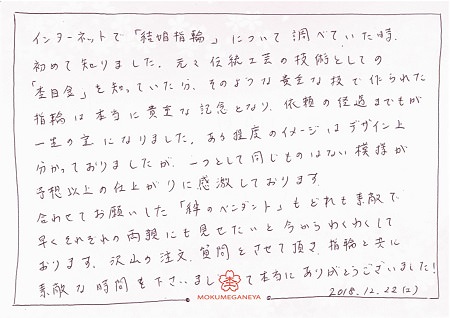 インターネットで「結婚指輪」について調べていた時、
初めて知りました。元々伝統工芸の技術としての
「杢目金」を知っていた分、そのような貴重な技で作られた
指輪は本当に貴重な記念となり、依頼の経過までもが
一生の宝になりました。ある程度のイメージはデザイン上
分かっておりましたが、一つとして同じものはない模様が
予想以上の仕上がりに感激しております。
合わせてお願いした「絆のペンダント」もどれも素敵で
早くそれぞれの両親にも見せたいと今からわくわくして
おります。沢山の注文、質問とさせて頂き、指輪と共に
素敵な時間を下さいまして本当にありがとうございました!
MOKUMEGANEYA
2018.12.22(土)